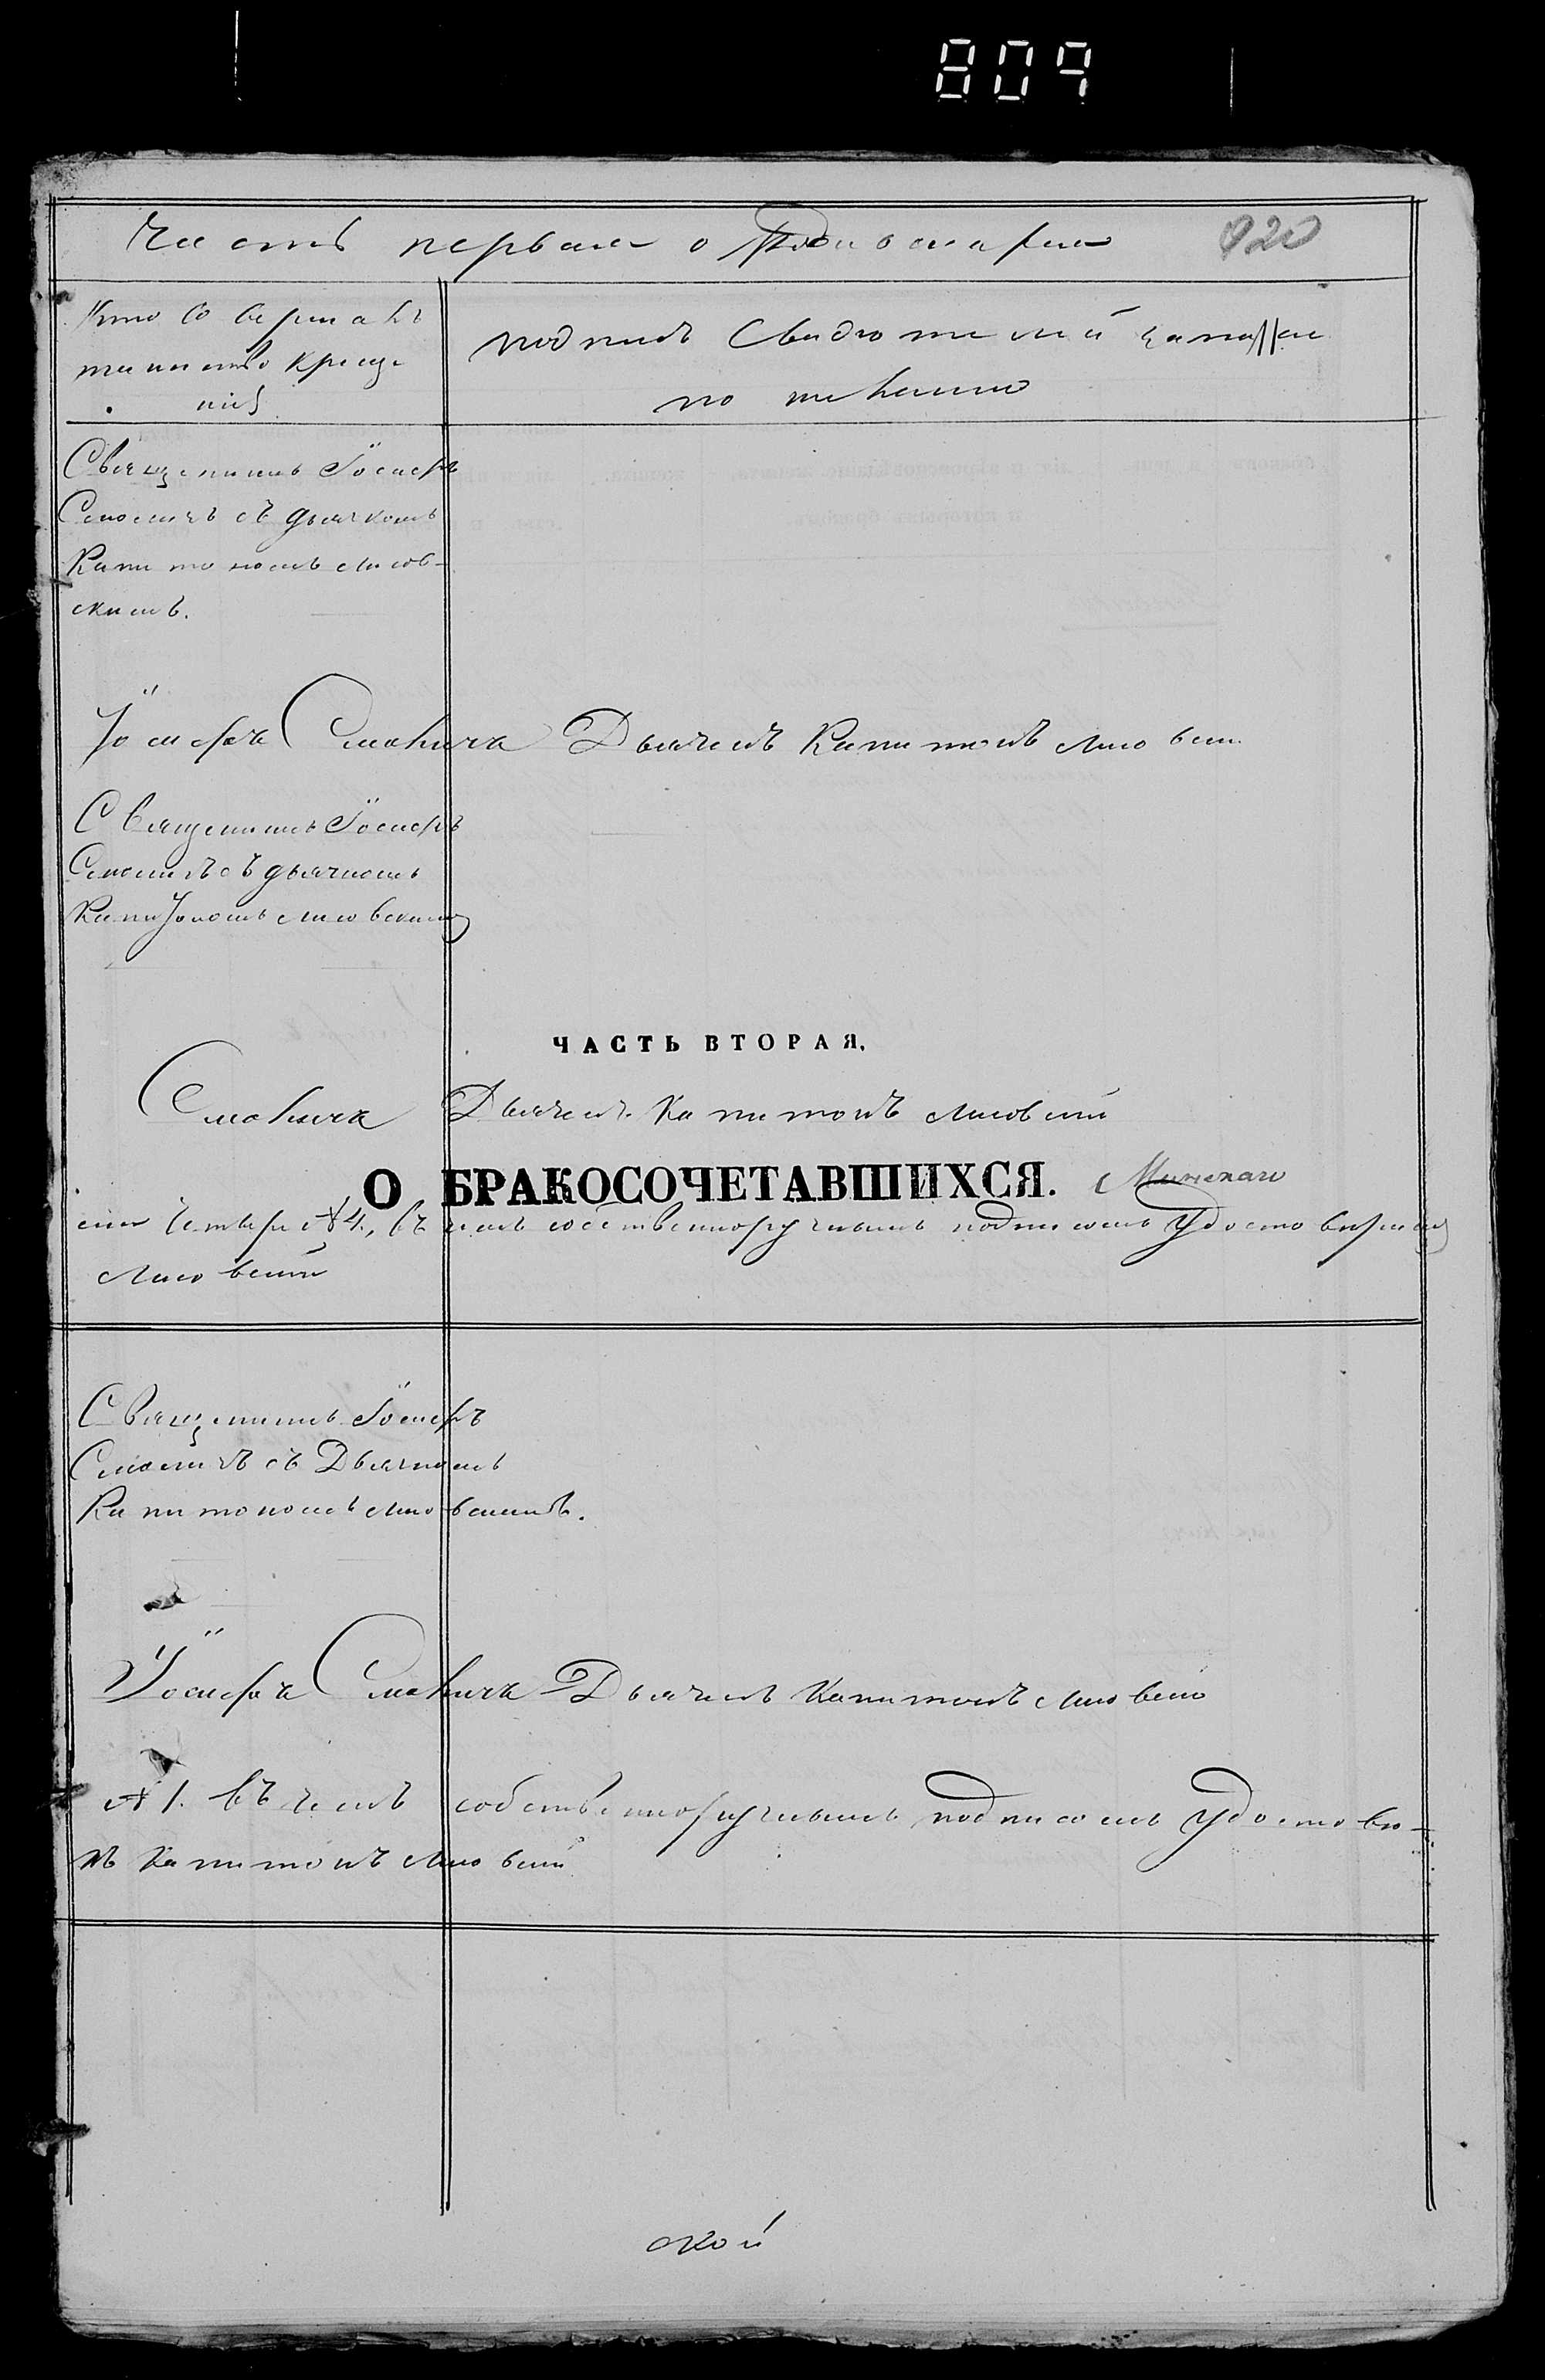 809
Часть первая о родившихся 920
Кто совершалъ
таинство креще
нія
подпись Свидетелей записи
по желанію
Священникъ Іосифъ
Смоличъ съ дьячкомъ
Капитономъ Лисов-
скимъ.
Іосифъ Смоличъ Дьячекъ Капитонъ
Священникъ Іосифъ
Смоличъ съ дьячкомъ
Капитономъ
ЧАСТЬ ВТОРАЯ.
Смоличъ Дьячекъ Капитонъ Лисовскій
О БРАКОСОЧЕТАВШИХСЯ. Минскаго
№ 4., въ чемъ собственноручнымъ подписомъ удостоверяемъ
Лисовскій
Священникъ Іосифъ
Смоличъ съ Дьячкомъ
Капитономъ Лисовскимъ.
Іосифъ Смоличъ Дьячекъ Капитонъ
№ 1. въ чемъ собственноручнымъ подписомъ удостове-
Капитонъ Лисовскій
ской